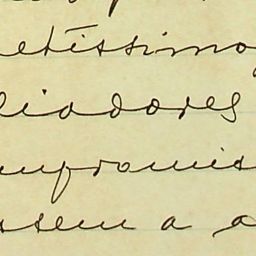 etissimo
liadores
mpromis
ssem a a